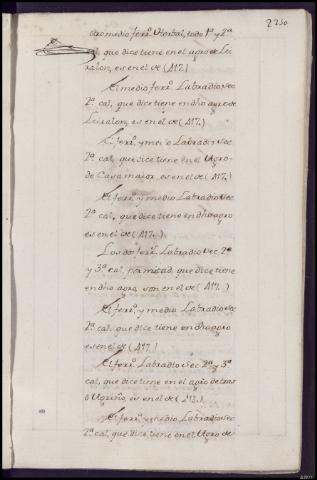 2250
medio ferr.º Nortal, todo 1ª y 2ª
cal, que dice tiene en el agro de Lei
ralon, es en el de (A17.)
El medio ferr.º Labradio sec
2ª cal, que dice tiene en dho agro de
Leiralon, es en el de (A17.)
El ferr.º y medio Labradio sec
2ª cal, que dice tiene en el Agro
de Casamaior, es en el de (A17.)
El ferr.º y medio Labradio sec
2ª cal, que dice tiene en dho agro
es en el de (A17.)
Los dos ferr.ˢ Labradio sec. 2ª
y 3ª cal, por mitad que dice tiene
en dho agro son en el de (A17.)
El ferr.º y medio Labradio sec
2ª cal, que dice tiene en dho agro
es en el de (A17.)
El ferr.º Labradio sec 2ª y 3ª
cal, que dice tiene en el agro detras
es en el de (A13.)
El ferr.º y medio Labradio sec
2ª cal, que dice tiene en el Agro de